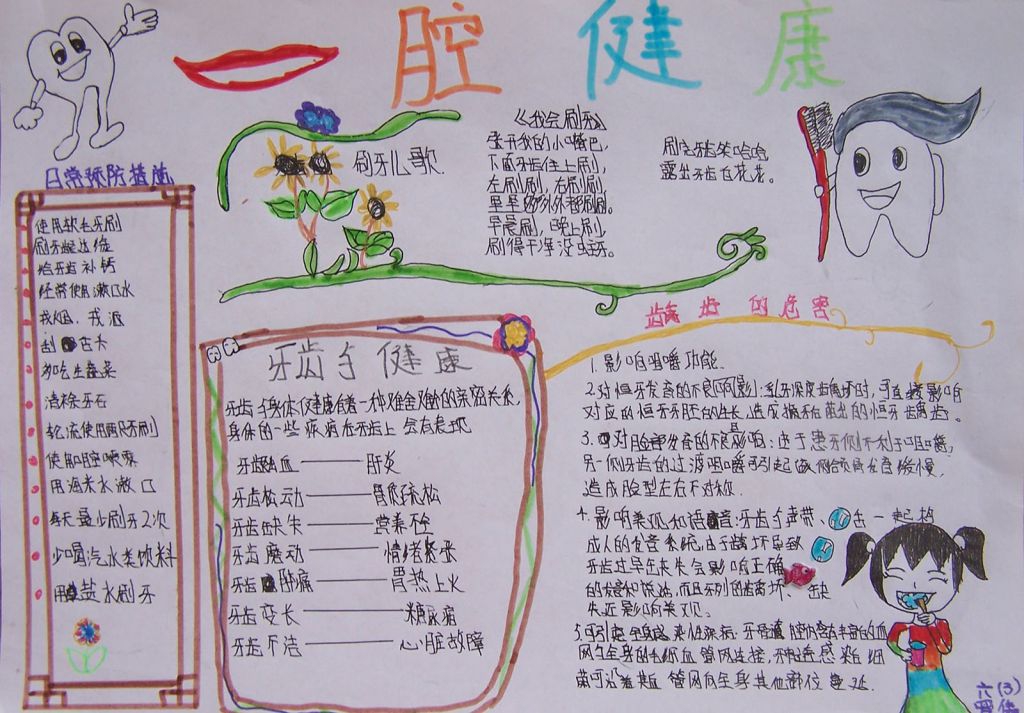 腔健康
日常预防措施
使用软毛牙刷
给牙齿补钙
经常使用漱口水
多吃生蔬菜
清除牙石
轮流使用两只牙刷
使用口腔喷雾
用海米水漱口
每天最少刷牙2次
少喝汽水类饮料
用盐水刷牙
刷牙儿歌
《我会刷牙》
张开我的小嘴巴,
下底牙齿往上刷,
左刷刷,右刷刷,
里里外外都刷刷。
早晨刷,晚上刷,
刷得干净没虫牙。
刷完牙齿笑哈哈,
露出牙齿白花花。
牙齿与健康
牙齿与身体健康有着一种难舍难分的亲密关系,
身体的一些疾病在牙齿上会有表现
牙龈出血——肝炎
牙齿松动——骨质疏松
牙齿缺失——营养不全
牙齿磨动——情绪紧张
牙齿肿痛——胃热上火
牙齿变长——糖尿病
牙齿不洁——心脏故障
龋齿的危害
1.影响咀嚼功能.
2.对恒牙发育的不良影响:乳牙深度龋坏时,可直接影响
对应的恒牙牙胚的生长,造成换和萌出的恒牙龋齿。
3.对脸部发育的不良影响:由于患牙侧不利于咀嚼,
另一侧牙齿的过渡咀嚼可引起一侧颌骨发育缓慢,
造成脸型左右不对称.
4.影响美观和语音:牙齿与声带、舌一起构
成人的发音系统,由于龋坏导致
牙齿过早缺失会影响正确
的发音和说话,而且牙列的龋坏、缺
失还影响美观。
5.可引起全身感染性疾病:牙骨髓腔内含有丰富的血
网与全身的毛细血管网连接,牙神经感染细
菌可沿着其血管网向全身其他部位蔓延.
六(3)